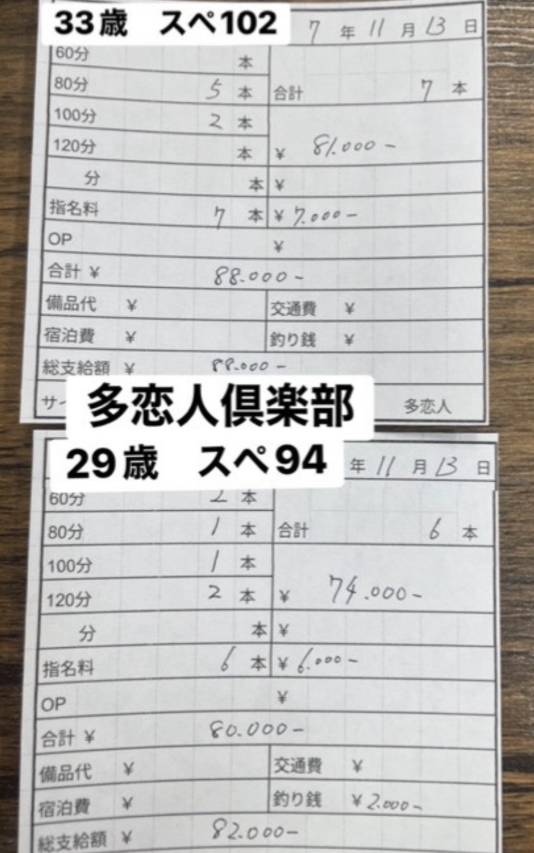 33歳 スペ102
7 年 11 月 13 日
60分 本
80分 5 本 合計 7 本
100分 2 本
120分 本 ¥ 81.000-
分 本 ¥
指名料 7 本 ¥ 7.000-
OP ¥
合計 ¥ 88.000-
備品代 ¥ 交通費 ¥
宿泊費 ¥ 釣り銭 ¥
総支給額 ¥ 88.000-
サ 多恋人
多恋人倶楽部
29歳 スペ94
年 11 月 13 日
60分 2 本
80分 1 本 合計 6 本
100分 1 本
120分 2 本 ¥ 74.000-
分 本 ¥
指名料 6 本 ¥ 6.000-
OP ¥
合計 ¥ 80.000-
備品代 ¥ 交通費 ¥
宿泊費 ¥ 釣り銭 ¥ 2.000-
総支給額 ¥ 82.000-